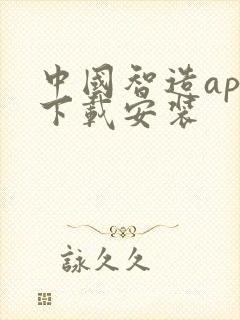 中國智造ap
下載安裝
詠久久